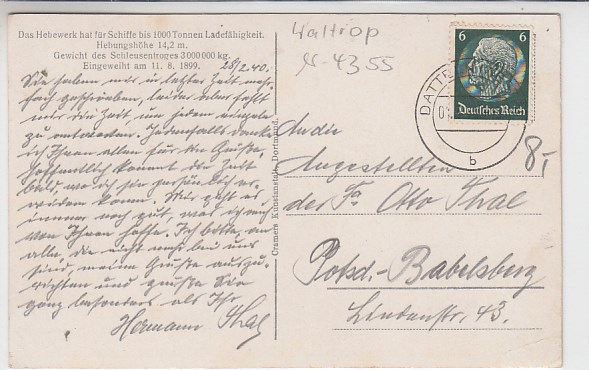 Das Hebewerk hat für Schiffe bis 1000 Tonnen Ladefähigkeit.
Hebungshöhe 14,2 m.
Gewicht des Schleusentroges 3 000 000 kg.
Eingeweiht am 11. 8. 1899.
28/2.40.
Sie haben mir in letzter Zeit mehr-
fach geschrieben, leider aber fehlt
mir die Zeit um jedem einzeln
zu antworten. Jedenfalls danke
ich Ihnen allen für die Grüße.
Hoffentlich kommt die Zeit
bald, wo ich sie persönlich er-
widern kann. Mir geht es
immer noch gut, was ich auch
von Ihnen hoffe. Ich bitte, an
alle, die nicht mehr bei uns
sind, meine Grüße auszu-
richten und grüße Sie
ganz besonders als Ihr
Hermann Thal
Cramers Kunstanstalt, Dortmund.
Waltrop
4355
6 6
Deutsches Reich
DATTE
b
8,-
An die
Angestellten
der Fa Otto Thal
Potsd.-Babelsberg
Lindenstr. 43.